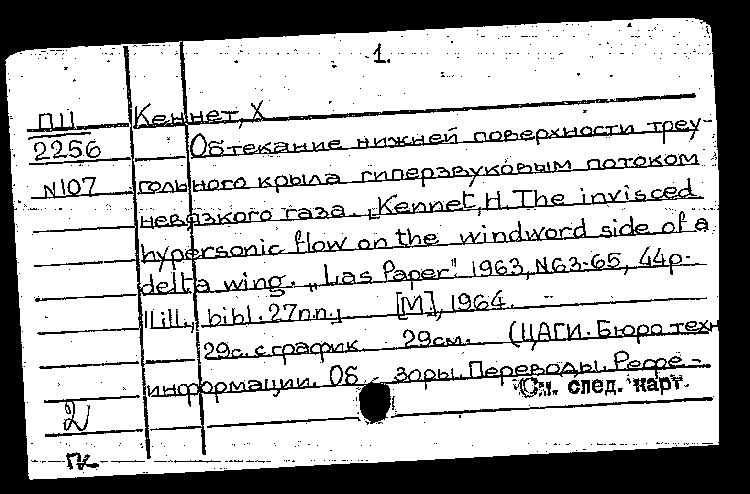 1.
ПЦ Кеннет, Х
2256 Обтекание нижней поверхности треу-
N107 гольного крыла гиперзвуковым потоком
невязкого газа. „Kennet, H. The invisced
hypersonic flow on the windword side of a
delta wing. „Las Paper". 1963, N63-65, 44p.
11ill., bibl. 27n.n.,
[М], 1964.
29с. с график 29см. (ЦАГИ. Бюро техн
информации. Об зоры. Переводы. Рефе-
См. след. карт.
2
ПК.